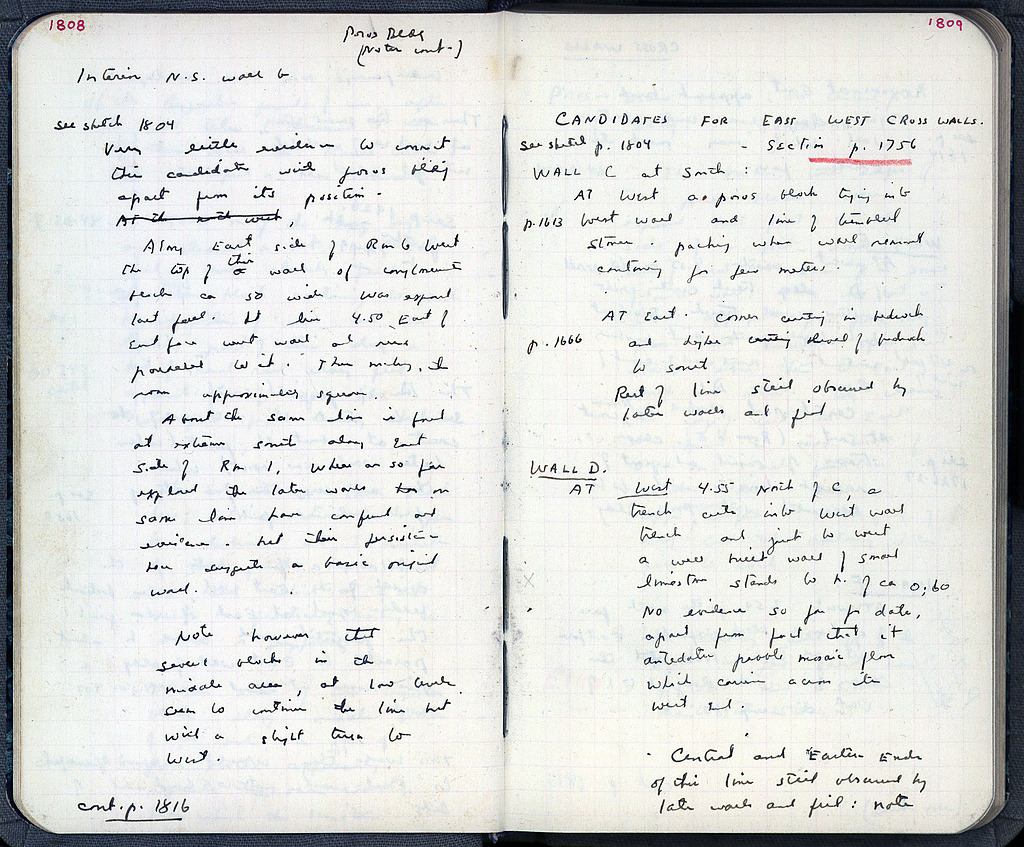 1808
Poros Bldg
(Notes cont-)
Interior N.S. wall G
see sketch 1804
Very little evidence to connect
this candidate with poros bldg
apart from its position.
At the north west,
Along East side of Rm 6 West
the top of this wall of conglomerate
blocks ca 50 wide was exposed
last year. It lies 4.50 East of
East face west wall and runs
parallel to it. Thus making the
room approximately square.
About the same line is found
at extreme south along East
side of Rm 1, where as so far
explored the later walls on
same line have confused our
evidence. but their persistence
suggests a basic original
wall.
Note however that
several blocks in the
middle area, at low level
seem to continue the line but
with a slight turn to
West.
cont. p. 1816
1809
CANDIDATES FOR EAST WEST CROSS WALLS.
see sketch p. 1804 - Section p. 1756
WALL C at South:
AT West a poros block tying into
p. 1613 West wall and line of tumbled
stones packing when wall removed
continuing for few meters.
AT East corner cutting in bedrock
p. 1666 and dyke shelf of bedrock
to south
Rest of line still obscured by
later walls and fill
WALL D.
AT West 4.55 North of C, a
trench cuts into West wall
trench and just to west
a well built wall of small
limestone stands to h. of ca 0,60
No evidence so far for date,
apart from fact that it
antedates pebble mosaic floor
which carries across its
West end.
Central and Eastern Ends
of this line still obscured by
late walls and fill: Note